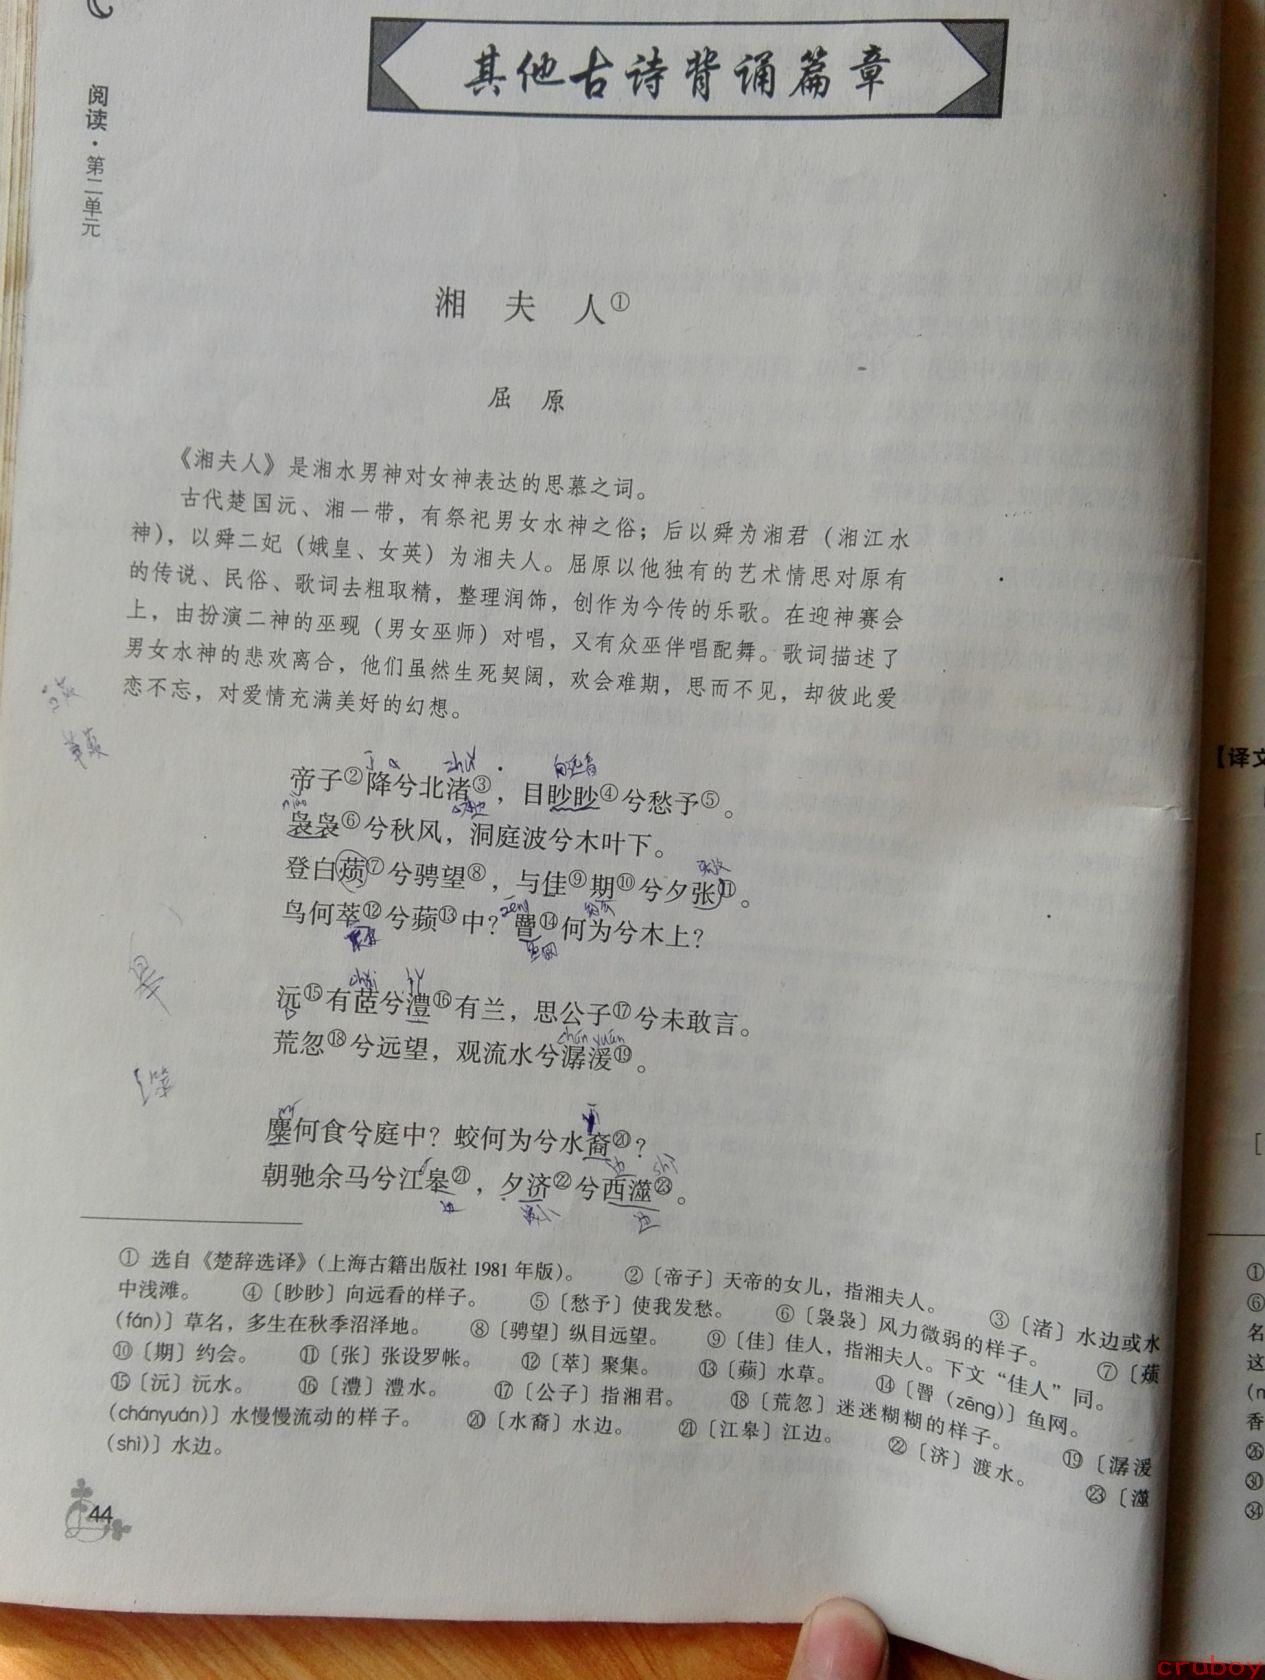 其他古诗背诵篇章
阅读·第二单元
湘 夫 人①
屈 原
《湘夫人》是湘水男神对女神表达的思慕之词。
古代楚国沅、湘一带，有祭祀男女水神之俗；后以舜为湘君（湘江水
神），以舜二妃（娥皇、女英）为湘夫人。屈原以他独有的艺术情思对原有
的传说、民俗、歌词去粗取精，整理润饰，创作为今传的乐歌。在迎神赛会
上，由扮演二神的巫觋（男女巫师）对唱，又有众巫伴唱配舞。歌词描述了
男女水神的悲欢离合，他们虽然生死契阔，欢会难期，思而不见，却彼此爱
恋不忘，对爱情充满美好的幻想。
帝子②降兮北渚③，目眇眇④兮愁予⑤。
袅袅⑥兮秋风，洞庭波兮木叶下。
登白薠⑦兮骋望⑧，与佳⑨期⑩兮夕张⑪。
鸟何萃⑫兮蘋⑬中？罾⑭何为兮木上？
沅⑮有茝兮澧⑯有兰，思公子⑰兮未敢言。
荒忽⑱兮远望，观流水兮潺湲⑲。
chán yuán
麋何食兮庭中？蛟何为兮水裔⑳？
朝驰余马兮江皋㉑，夕济㉒兮西澨㉓。
① 选自《楚辞选译》（上海古籍出版社 1981 年版）。 ②〔帝子〕天帝的女儿，指湘夫人。 ③〔渚〕水边或水
中浅滩。 ④〔眇眇〕向远看的样子。 ⑤〔愁予〕使我发愁。 ⑥〔袅袅〕风力微弱的样子。 ⑦〔薠
(fán)〕草名，多生在秋季沼泽地。 ⑧〔骋望〕纵目远望。 ⑨〔佳〕佳人，指湘夫人。下文“佳人”同。
⑩〔期〕约会。 ⑪〔张〕张设罗帐。 ⑫〔萃〕聚集。 ⑬〔蘋〕水草。 ⑭〔罾 (zēng)〕鱼网。
⑮〔沅〕沅水。 ⑯〔澧〕澧水。 ⑰〔公子〕指湘君。 ⑱〔荒忽〕迷迷糊糊的样子。 ⑲〔潺湲
(chányuán)〕水慢慢流动的样子。 ⑳〔水裔〕水边。 ㉑〔江皋〕江边。 ㉒〔济〕渡水。 ㉓〔澨
(shì)〕水边。
44
【译文
①
⑥
名
这
香
㉖
㉚
㉞
cruboy